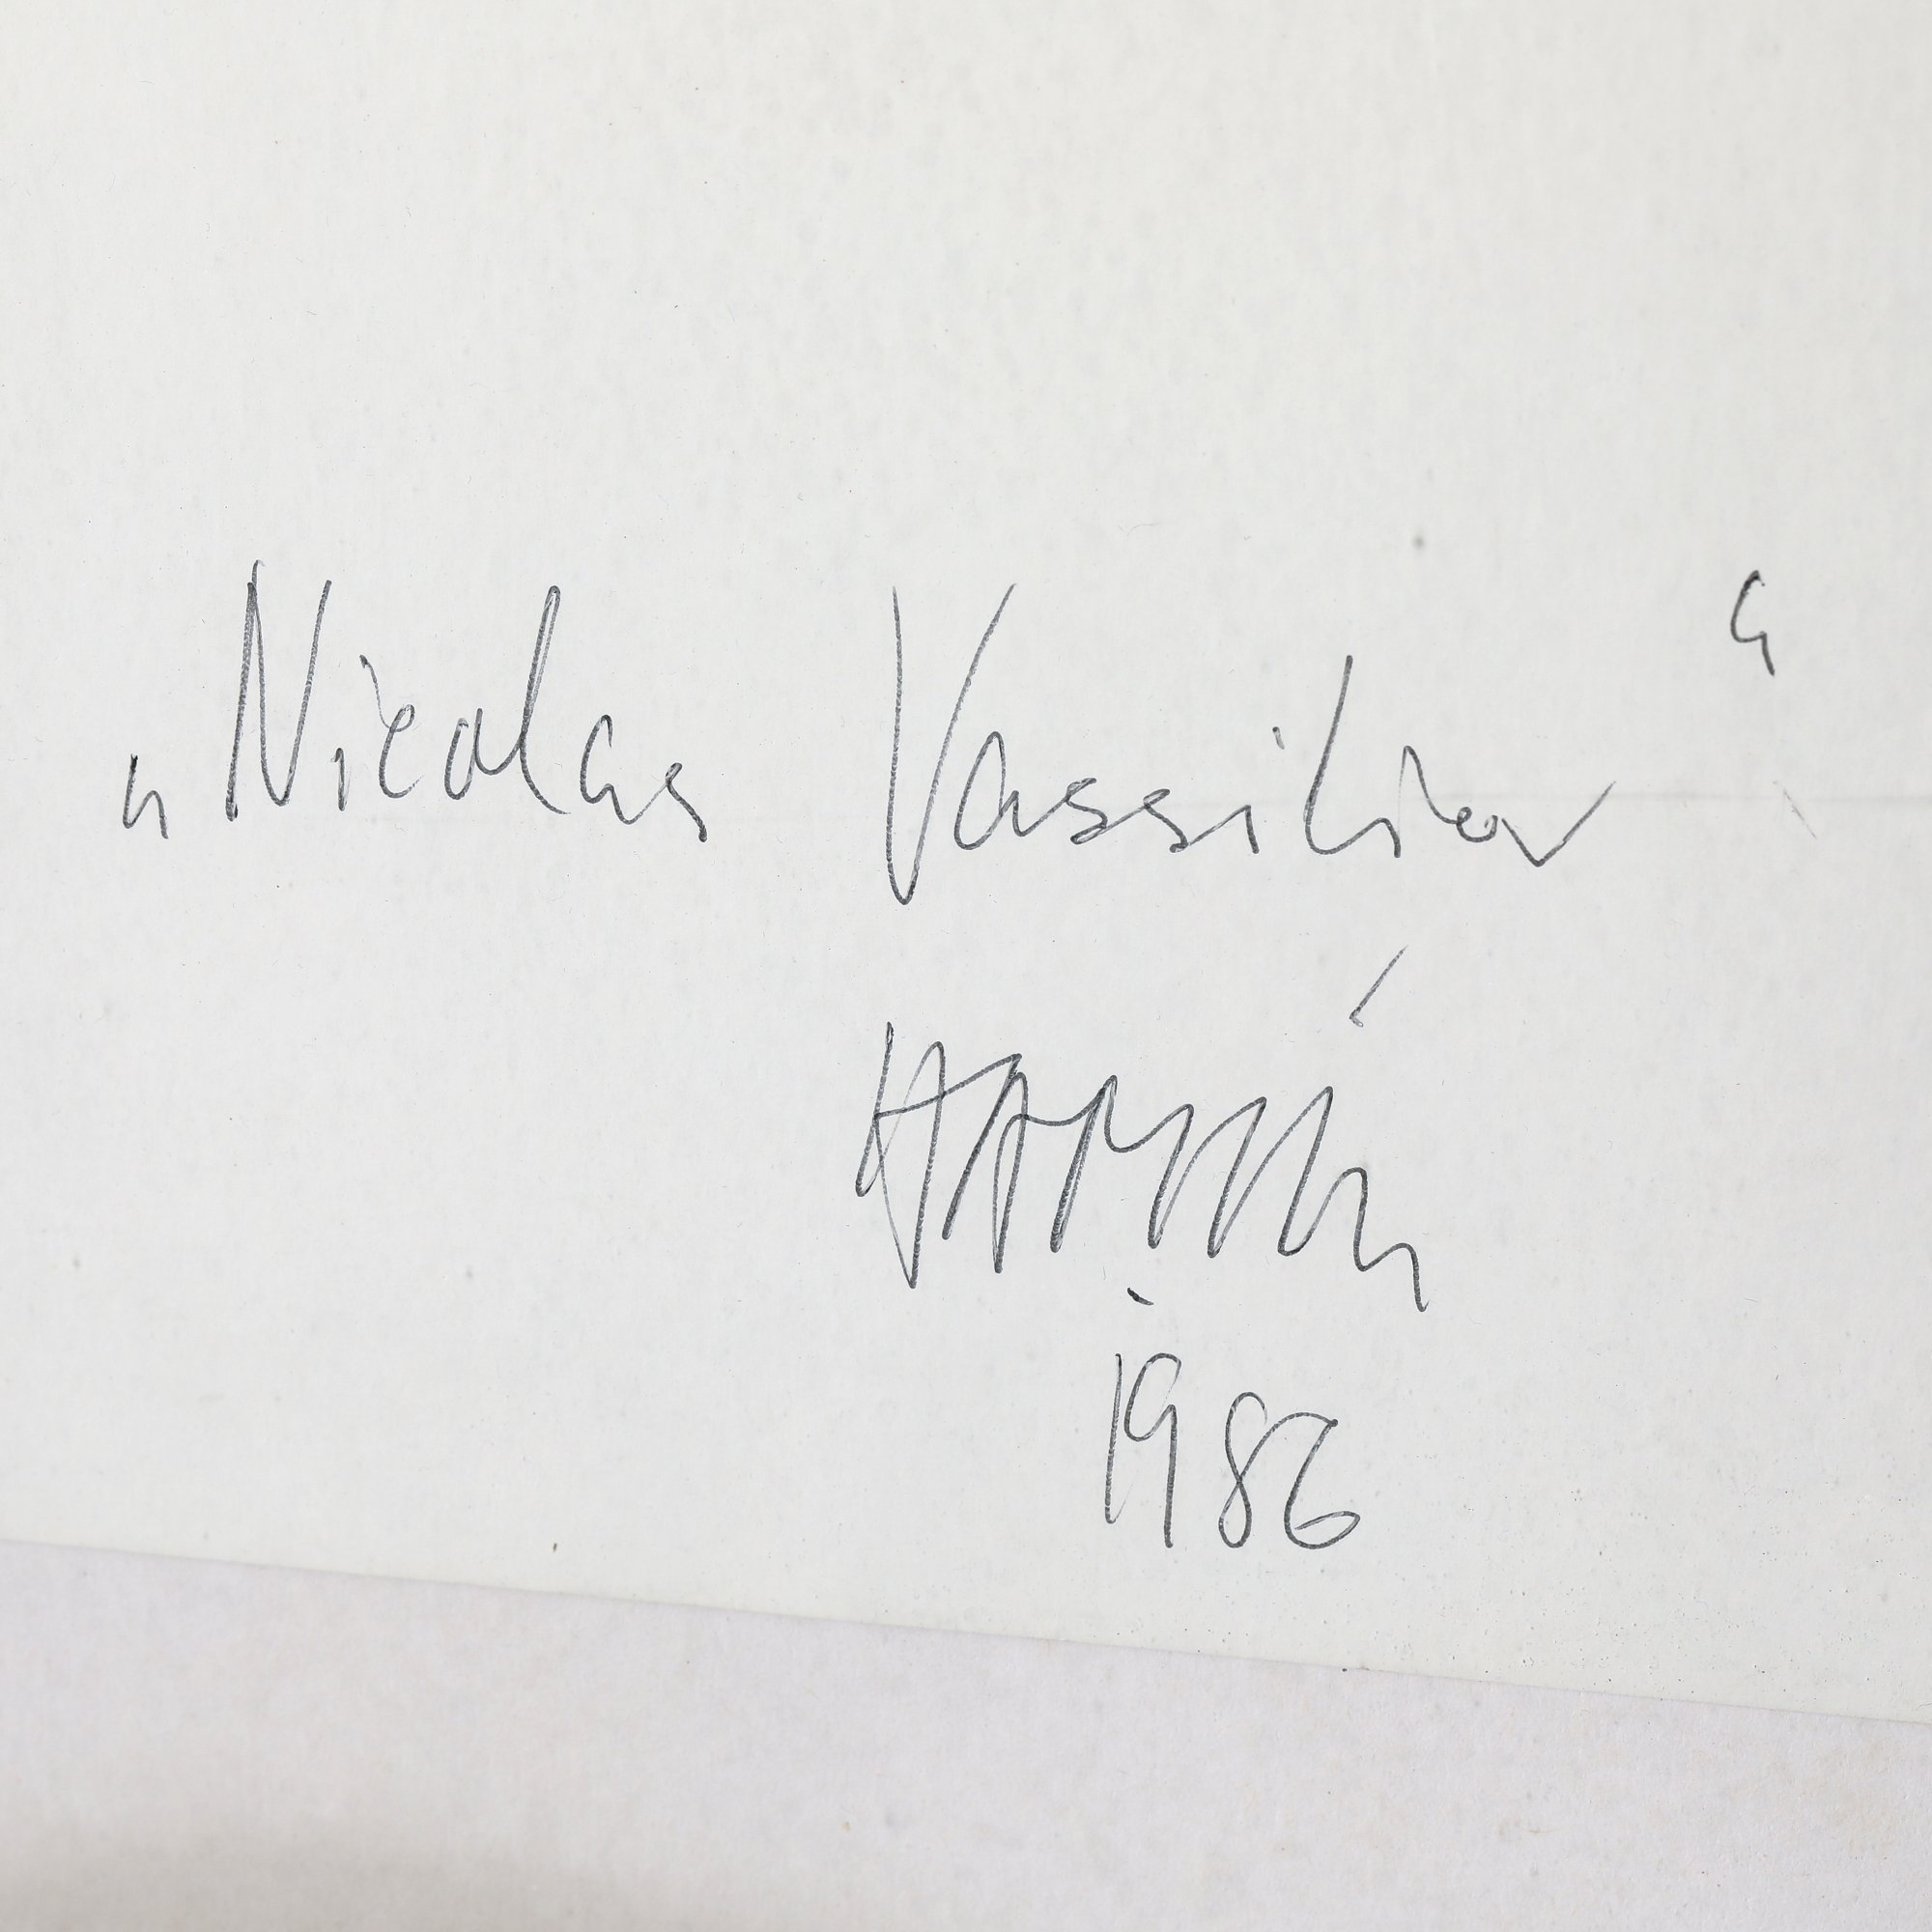 „Nicolas Vassiliev“
1986